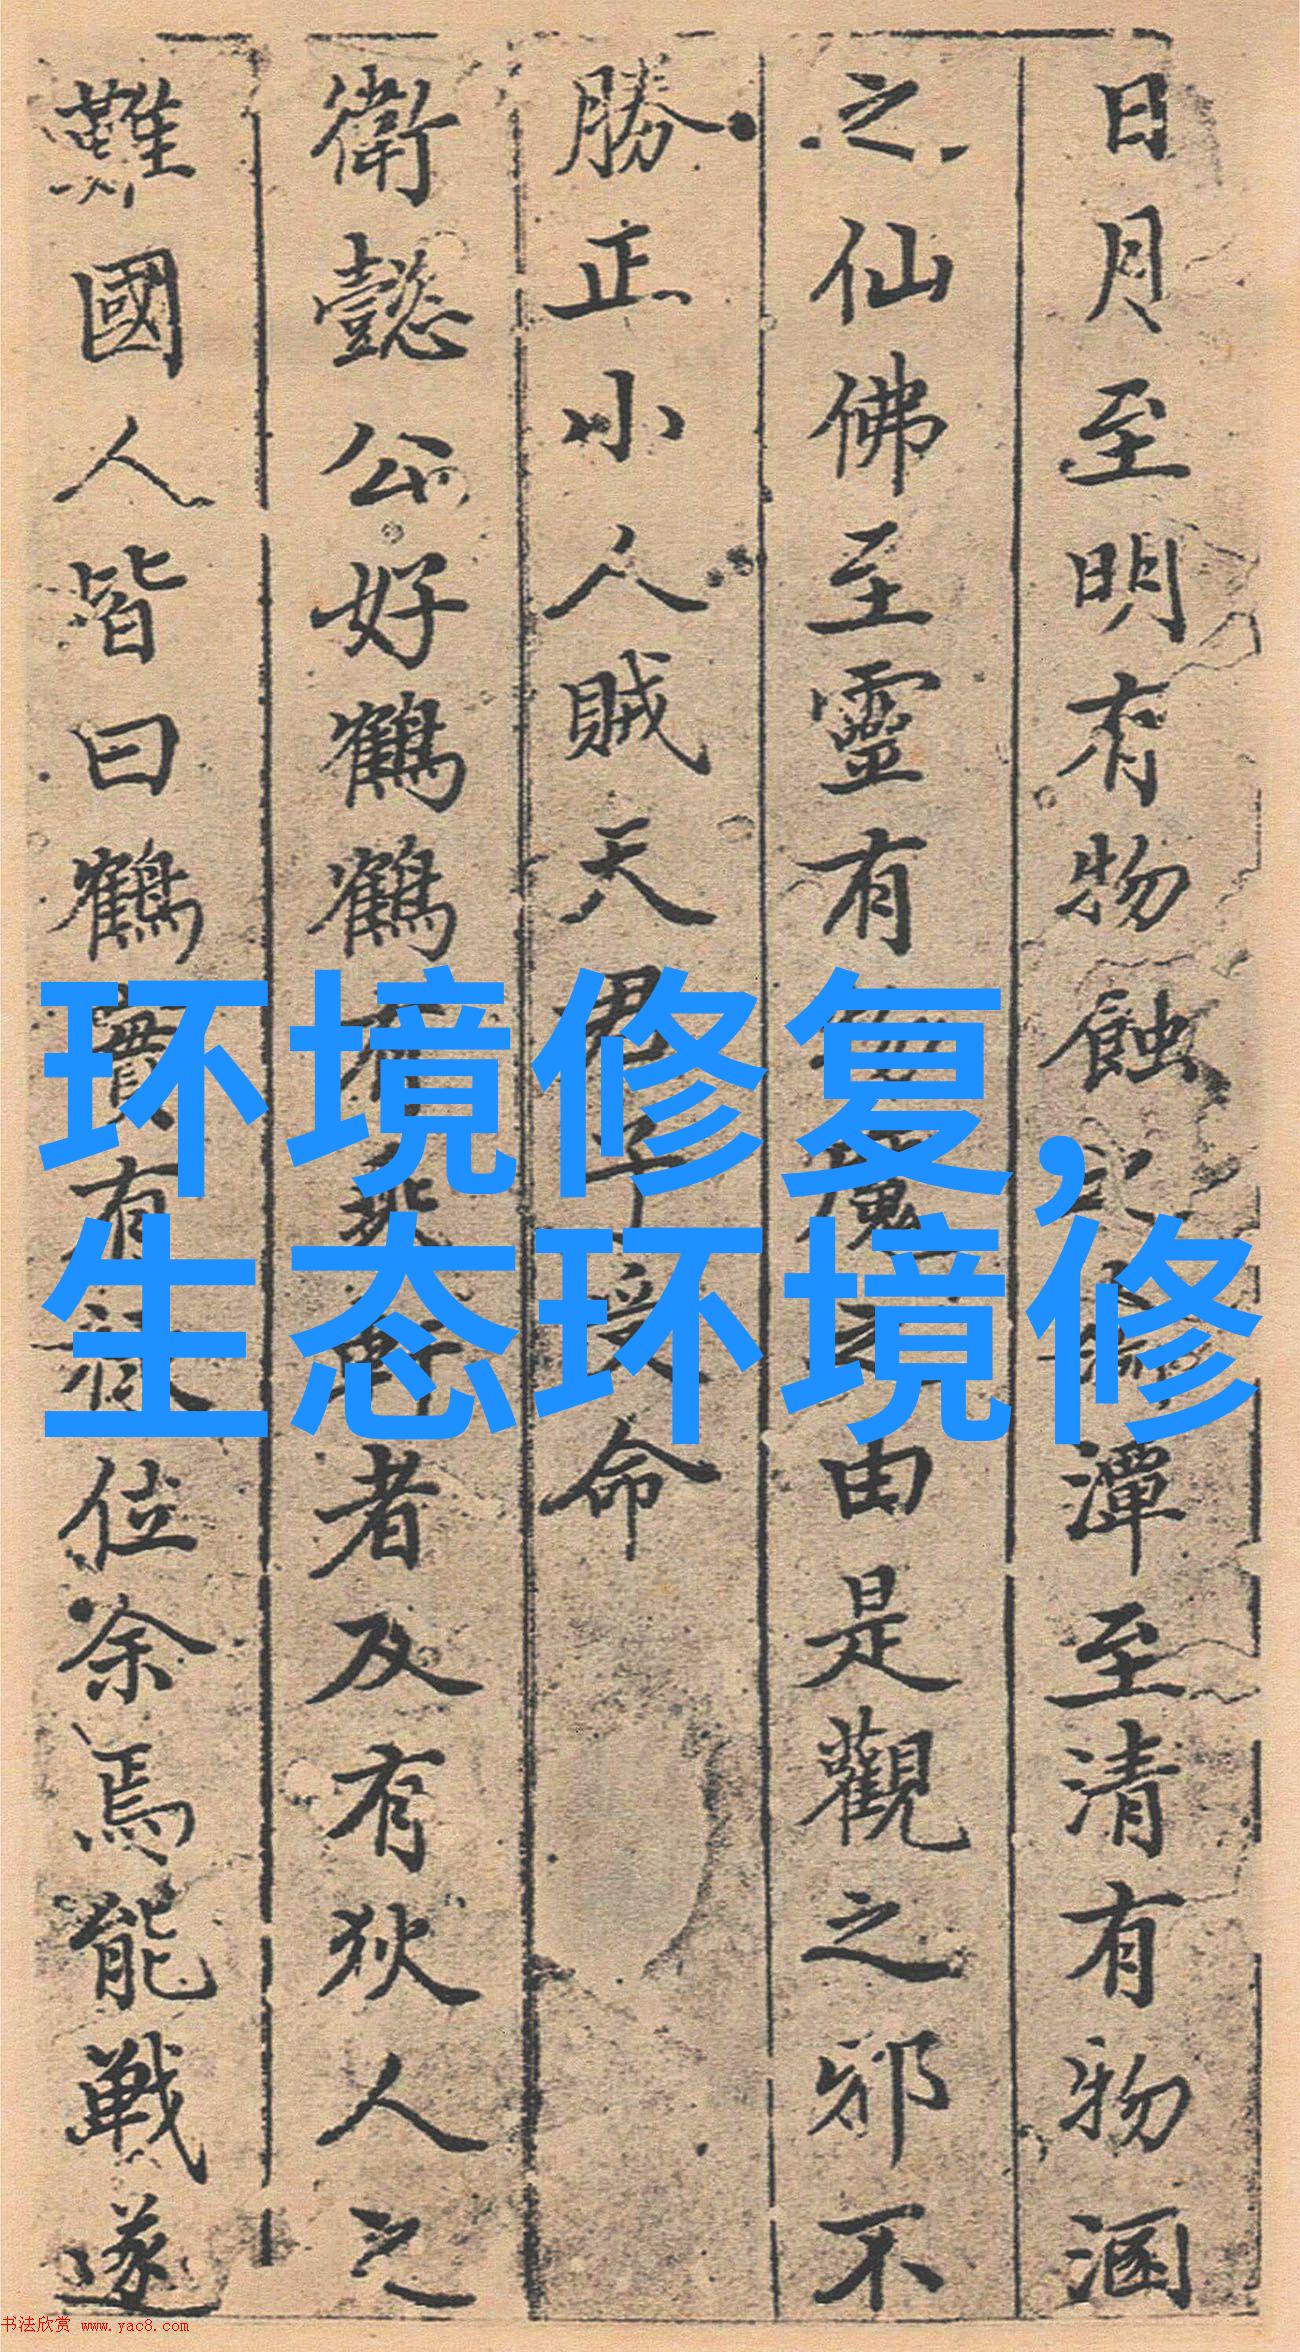 日月至明有物蝕之潭至清有物溷
之仙佛至靈有魔之由是觀之邪不
勝正小人賊天君子受命
衛懿公好鶴鶴有乘軒者及有狄人之
難國人皆曰鶴實有祿位余焉能戰遂
环境修复，
生态环境修
书法欣赏 www.yac8.com